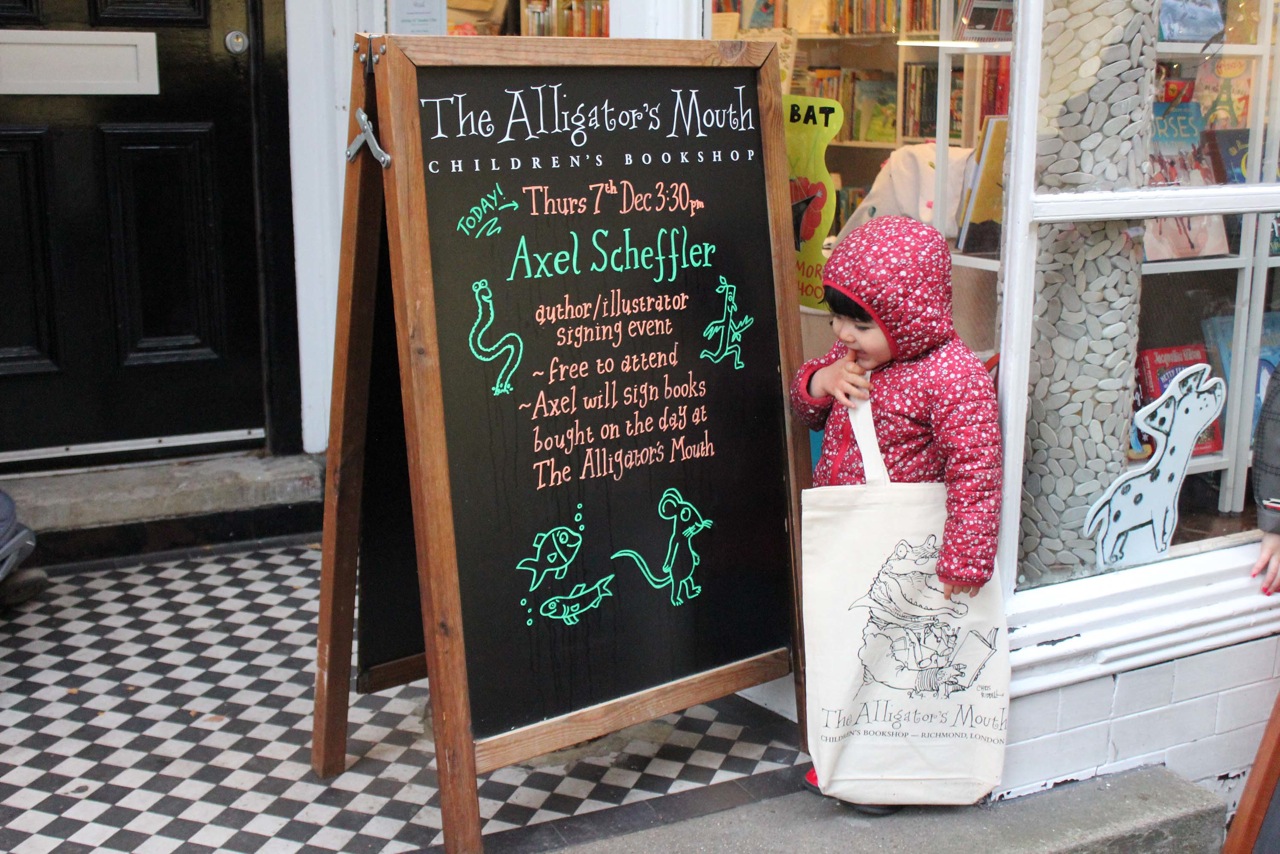 The Alligator's Mouth
CHILDREN'S BOOKSHOP
TODAY!
Thurs 7th Dec 3:30pm
Axel Scheffler
author/illustrator
signing event
~free to attend
~Axel will sign books
bought on the day at
The Alligator's Mouth
BAT
MOR
HORSES
CHRIS
The Alligator's Mouth
CHILDREN'S BOOKSHOP — RICHMOND, LONDON